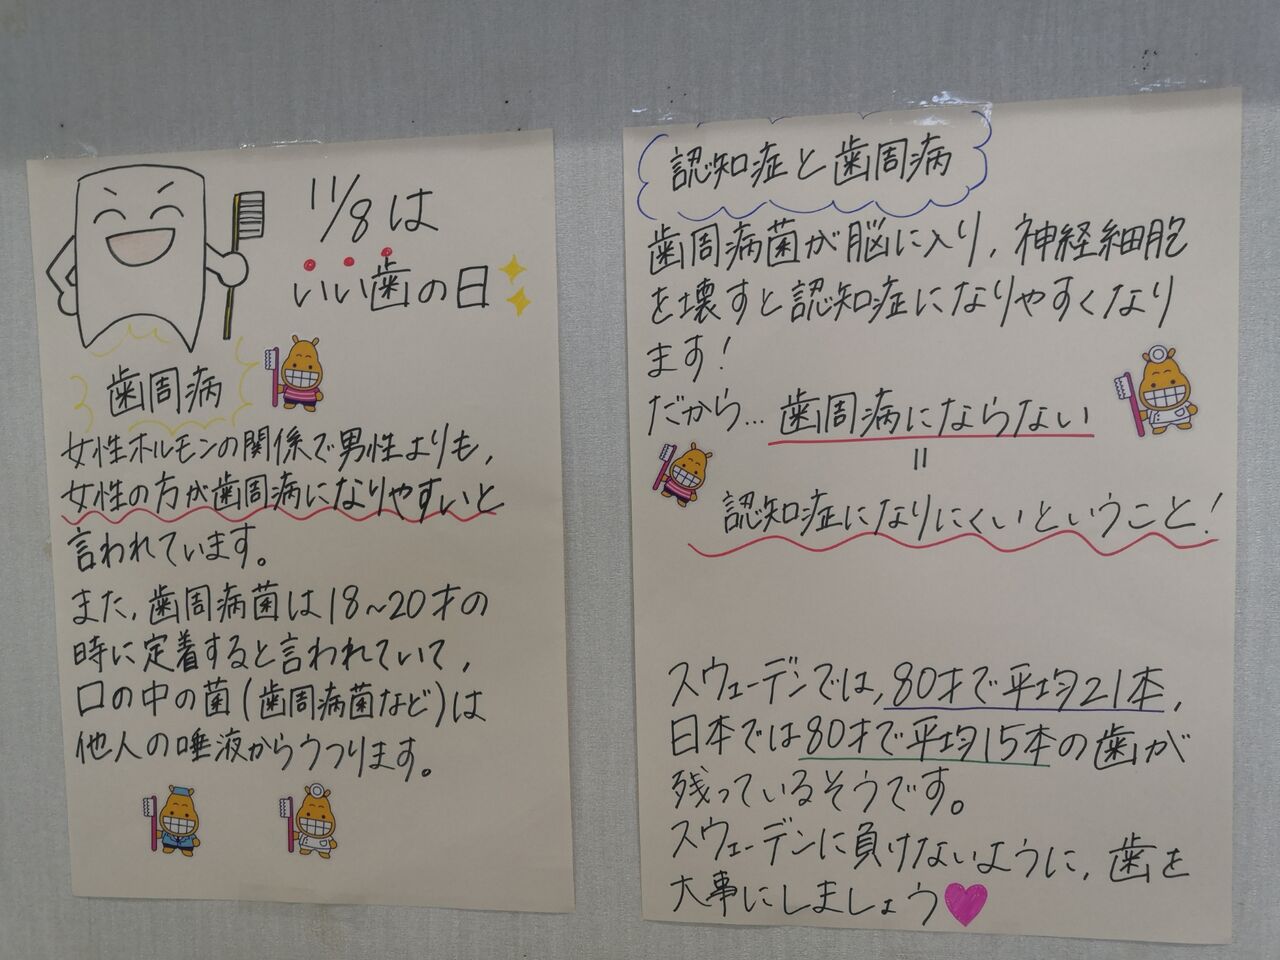 11/8は
いい歯の日
歯周病
女性ホルモンの関係で男性よりも，
女性の方が歯周病になりやすいと
言われています。
また，歯周病菌は18～20才の
時に定着すると言われていて，
口の中の菌(歯周病菌など)は
他人の唾液からうつります。
認知症と歯周病
歯周病菌が脳に入り，神経細胞
を壊すと認知症になりやすくなり
ます！
だから…歯周病にならない
＝
認知症になりにくいということ！
スウェーデンでは，80才で平均21本，
日本では80才で平均15本の歯が
残っているそうです。
スウェーデンに負けないように，歯を
大事にしましょう♥